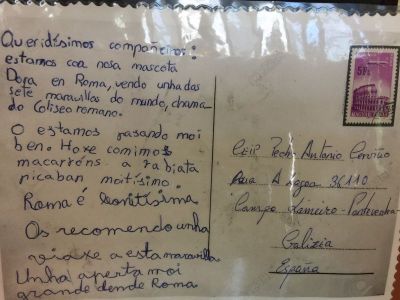 Queridísimos compañeiros:
estamos coa nosa mascota
Dora en Roma, vendo unha das
sete maravillas do mundo, chama-
do Coliseo romano.
O estamos pasando moi
ben. Hoxe comimos
macarróns a rabiata
picaban moitísimo.
Roma é bonitísima
Os recomendo unha
viaxe a esta maravilla
Unha aperta moi
grande dende Roma
5Fr
CEIP Pedro Antonio Cerviño
36110
Campo Lameiro - Pontevedra
Galizia
España